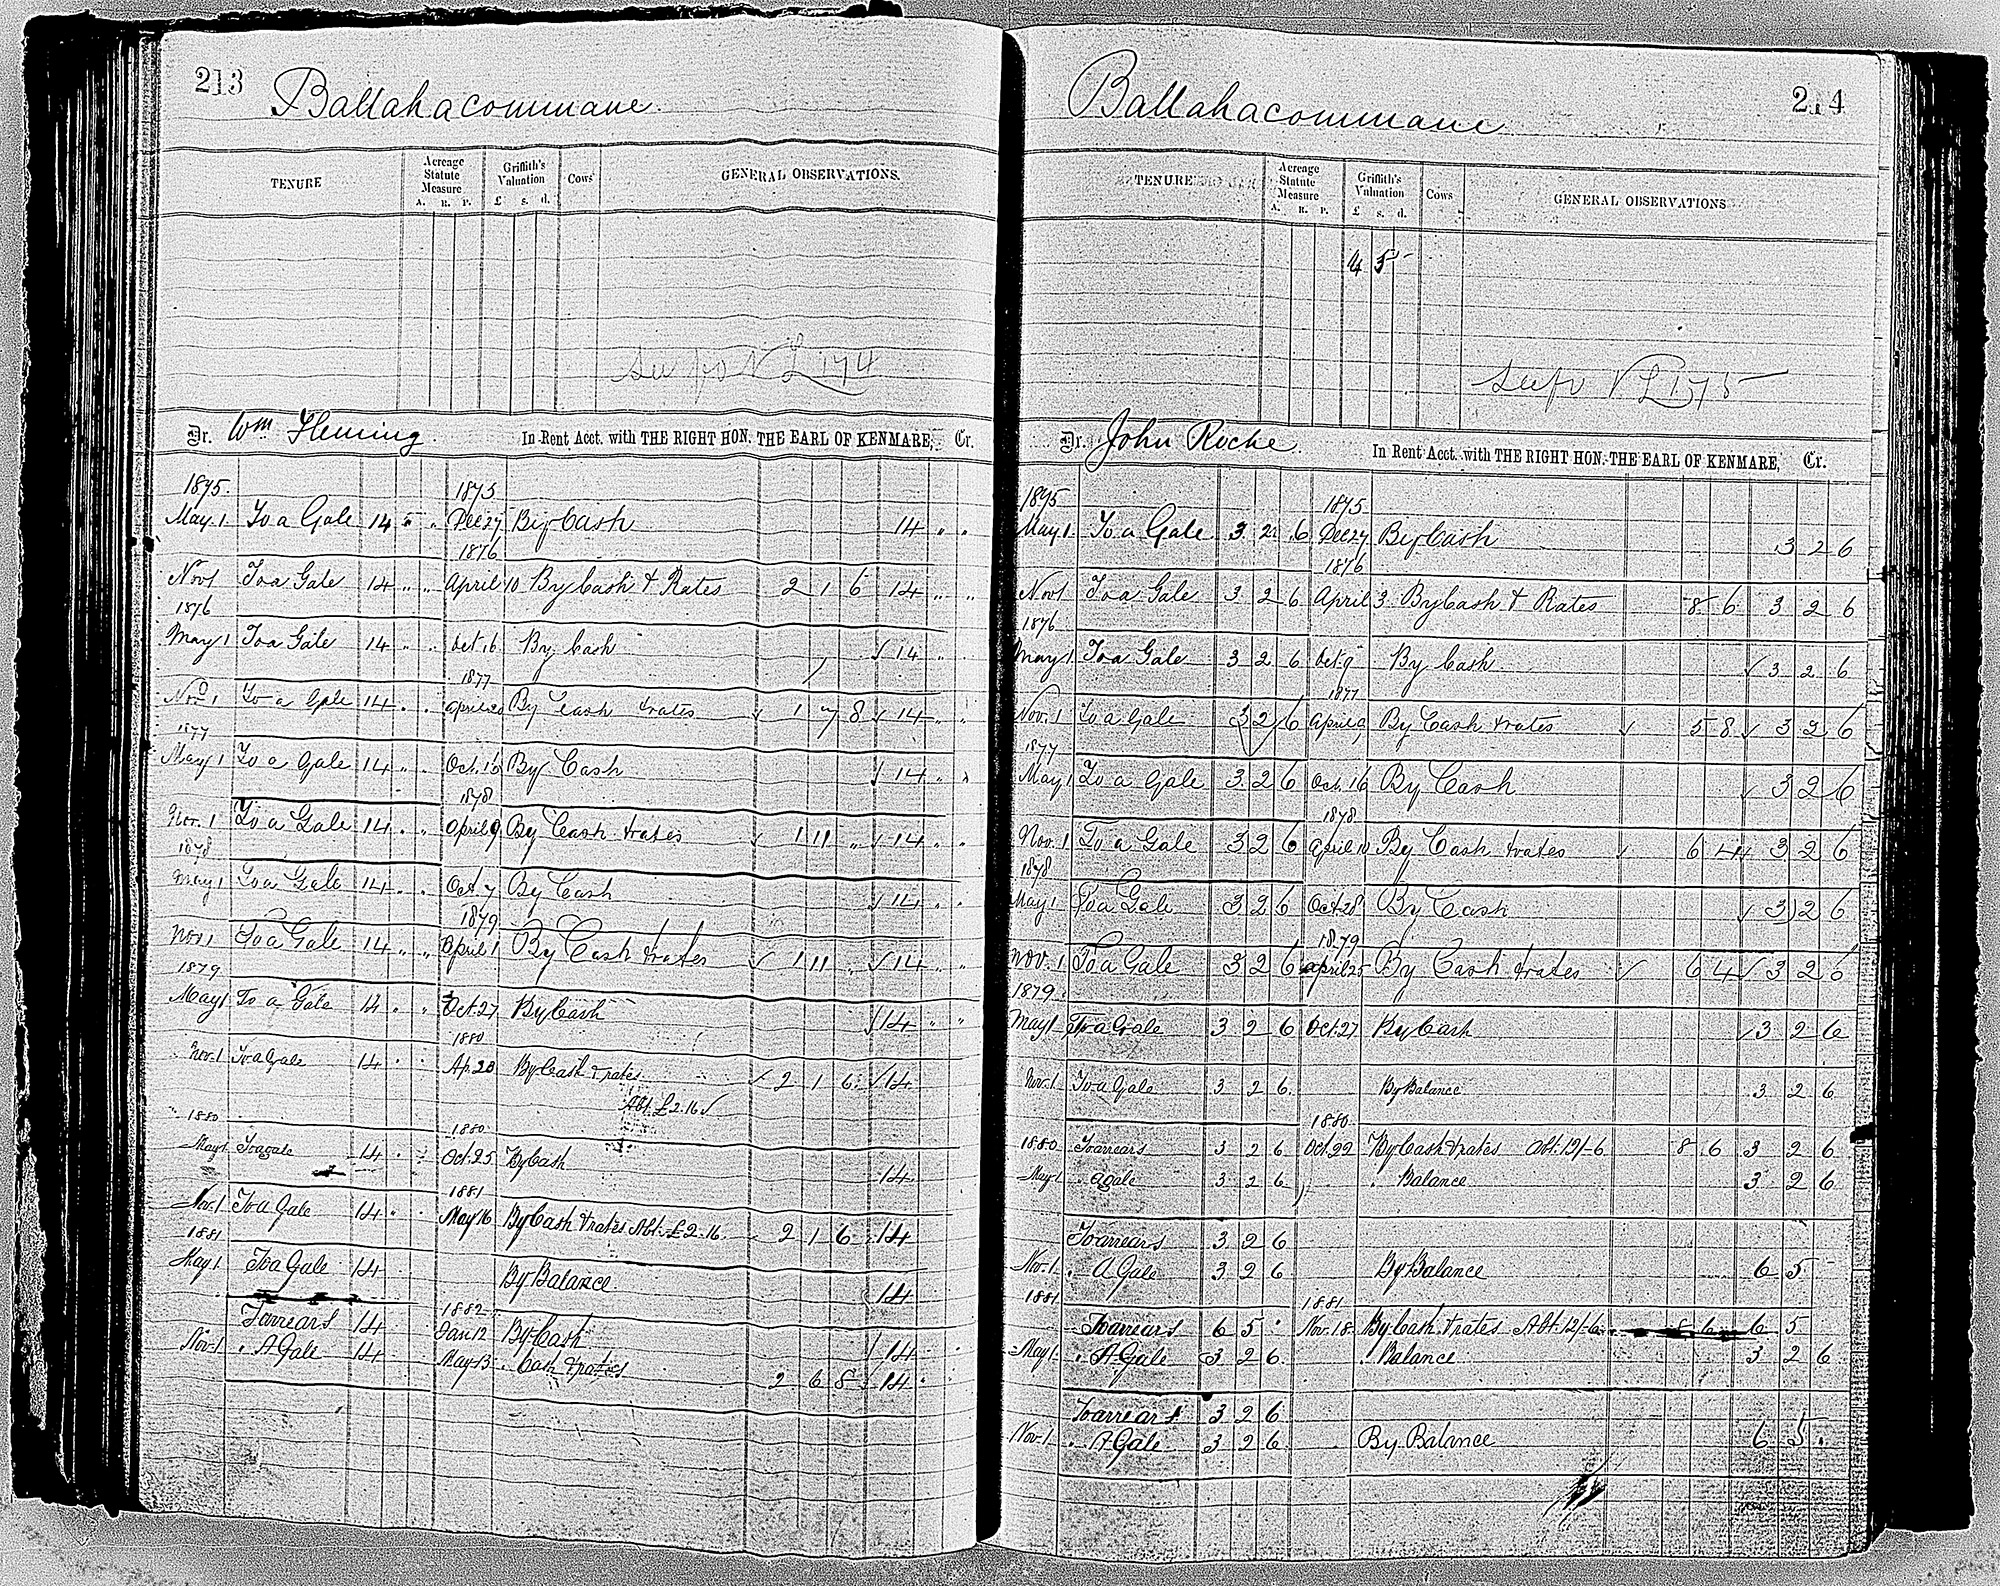 213
Ballahacommane
TENURE
Acreage Statute Measure
A. R. P.
Griffith's Valuation
£ s. d.
Cows
GENERAL OBSERVATIONS.
Dr. Wm Fleming In Rent Acct. with THE RIGHT HON. THE EARL OF KENMARE, Cr.
1875 1875
May 1 To a Gale 14 " Dec 27 By Cash 14 " "
1876
Nov 1 To a Gale 14 " " April 10 By Cash & Rates 2 1 6 14 " "
1876
May 1 To a Gale 14 " " Oct 16 By Cash 14 "
1877
Nov 1 To a Gale 14 " " April 20 By Cash & rates 1 7 8 14 " "
1877
May 1 To a Gale 14 " " Oct. 16 By Cash 14 " "
1878
Nov. 1 To a Gale 14 " " April 9 By Cash & rates 1 11 " 14 " "
1878
May 1 To a Gale 14 " " Oct 7 By Cash 14 " "
1879
Nov 1 To a Gale 14 " " April 1 By Cash & rates 1 11 " 14 " "
1879
May 1 To a Gale 14 " " Oct. 27 By Cash 14 " "
1880
Nov. 1 To a Gale 14 " " Ap. 28 By Cash & rates 2 1 6 14
Abt. £2.16
1880 1880
May 1 To a gale 14 " " Oct. 25 By Cash 14
1881
Nov. 1 To a Gale 14 " May 16 By Cash & rates Abt. £2.16 2 1 6 14
1881
May 1 To a Gale 14 By Balance 14
1882
To arrears 14 Jan 12 By Cash 14
Nov. 1 " A Gale 14 May 13 " Cash & rates 2 6 8 14
214
Ballahacommane
TENURE
Acreage Statute Measure
A. R. P.
Griffith's Valuation
£ s. d.
Cows
GENERAL OBSERVATIONS
4 5 -
Dr. John Roche In Rent Acct. with THE RIGHT HON. THE EARL OF KENMARE, Cr.
1875 1875
May 1 To a Gale 3 2 6 Dec 27 By Cash 3 2 6
1876
Nov 1 To a Gale 3 2 6 April 3 By Cash & Rates 8 6 3 2 6
1876
May 1 To a Gale 3 2 6 Oct. 9 By Cash 3 2 6
1877
Nov. 1 To a Gale 3 2 6 April 9 By Cash & rates 5 8 3 2 6
1877
May 1 To a Gale 3 2 6 Oct. 16 By Cash 3 2 6
1878
Nov. 1 To a Gale 3 2 6 April 10 By Cash & rates 6 4 3 2 6
1878
May 1 To a Gale 3 2 6 Oct 28 By Cash 3 2 6
1879
Nov. 1 To a Gale 3 2 6 April 25 By Cash & rates 6 4 3 2 6
1879
May 1 To a Gale 3 2 6 Oct. 27 By Cash 3 2 6
Nov. 1 To a Gale 3 2 6 By Balance 3 2 6
1880
1880 To arrears 3 2 6 Oct. 22 By Cash & rates Abt. 12/-6 8 6 3 2 6
May 1 " a gale 3 2 6 " Balance 3 2 6
To arrears 3 2 6
Nov. 1 " A Gale 3 2 6 By Balance 6 5
1881 1881
To arrears 6 5 " Nov. 18 By Cash & rates Abt. 12/-6 8 6 6 5
May 1 " A Gale 3 2 6 " Balance 3 2 6
To arrears 3 2 6
Nov. 1 " A Gale 3 2 6 By Balance 6 5 "